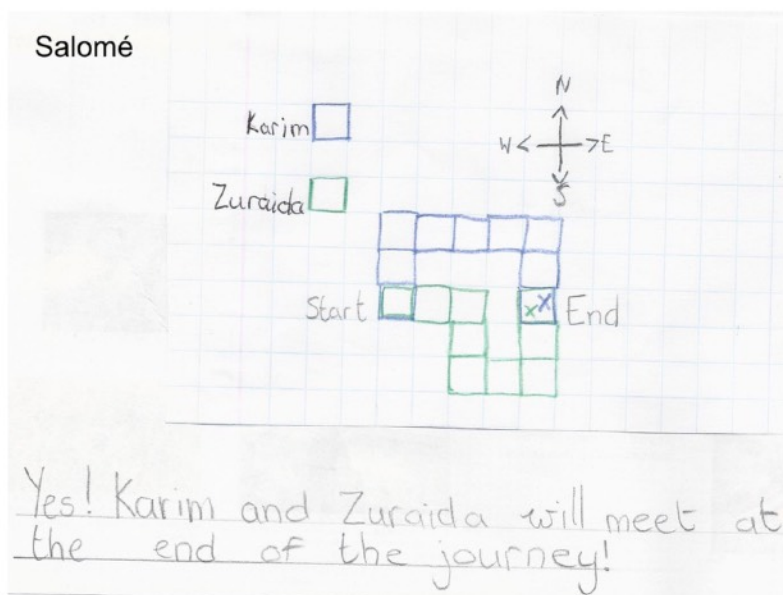 Salomé
N
Karim
W E
Zuraida
S
Start x x End
Yes! Karim and Zuraida will meet at
the end of the journey!